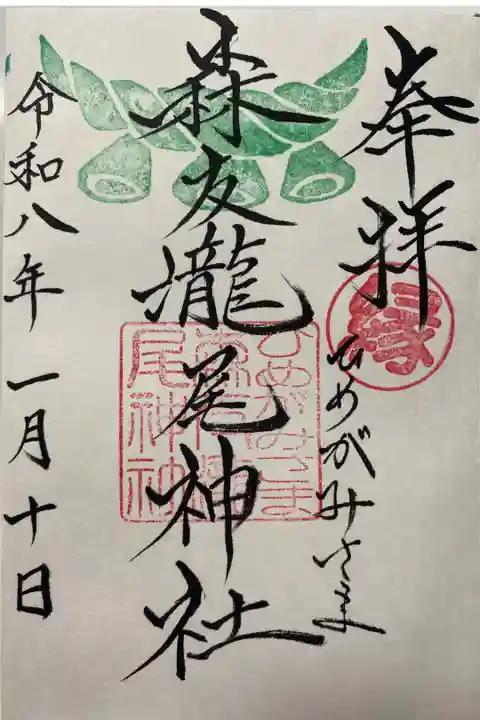 奉拝
縁
ひめがみさま
森友瀧尾神社
ひめがみさま
尾神社
令和八年一月十日